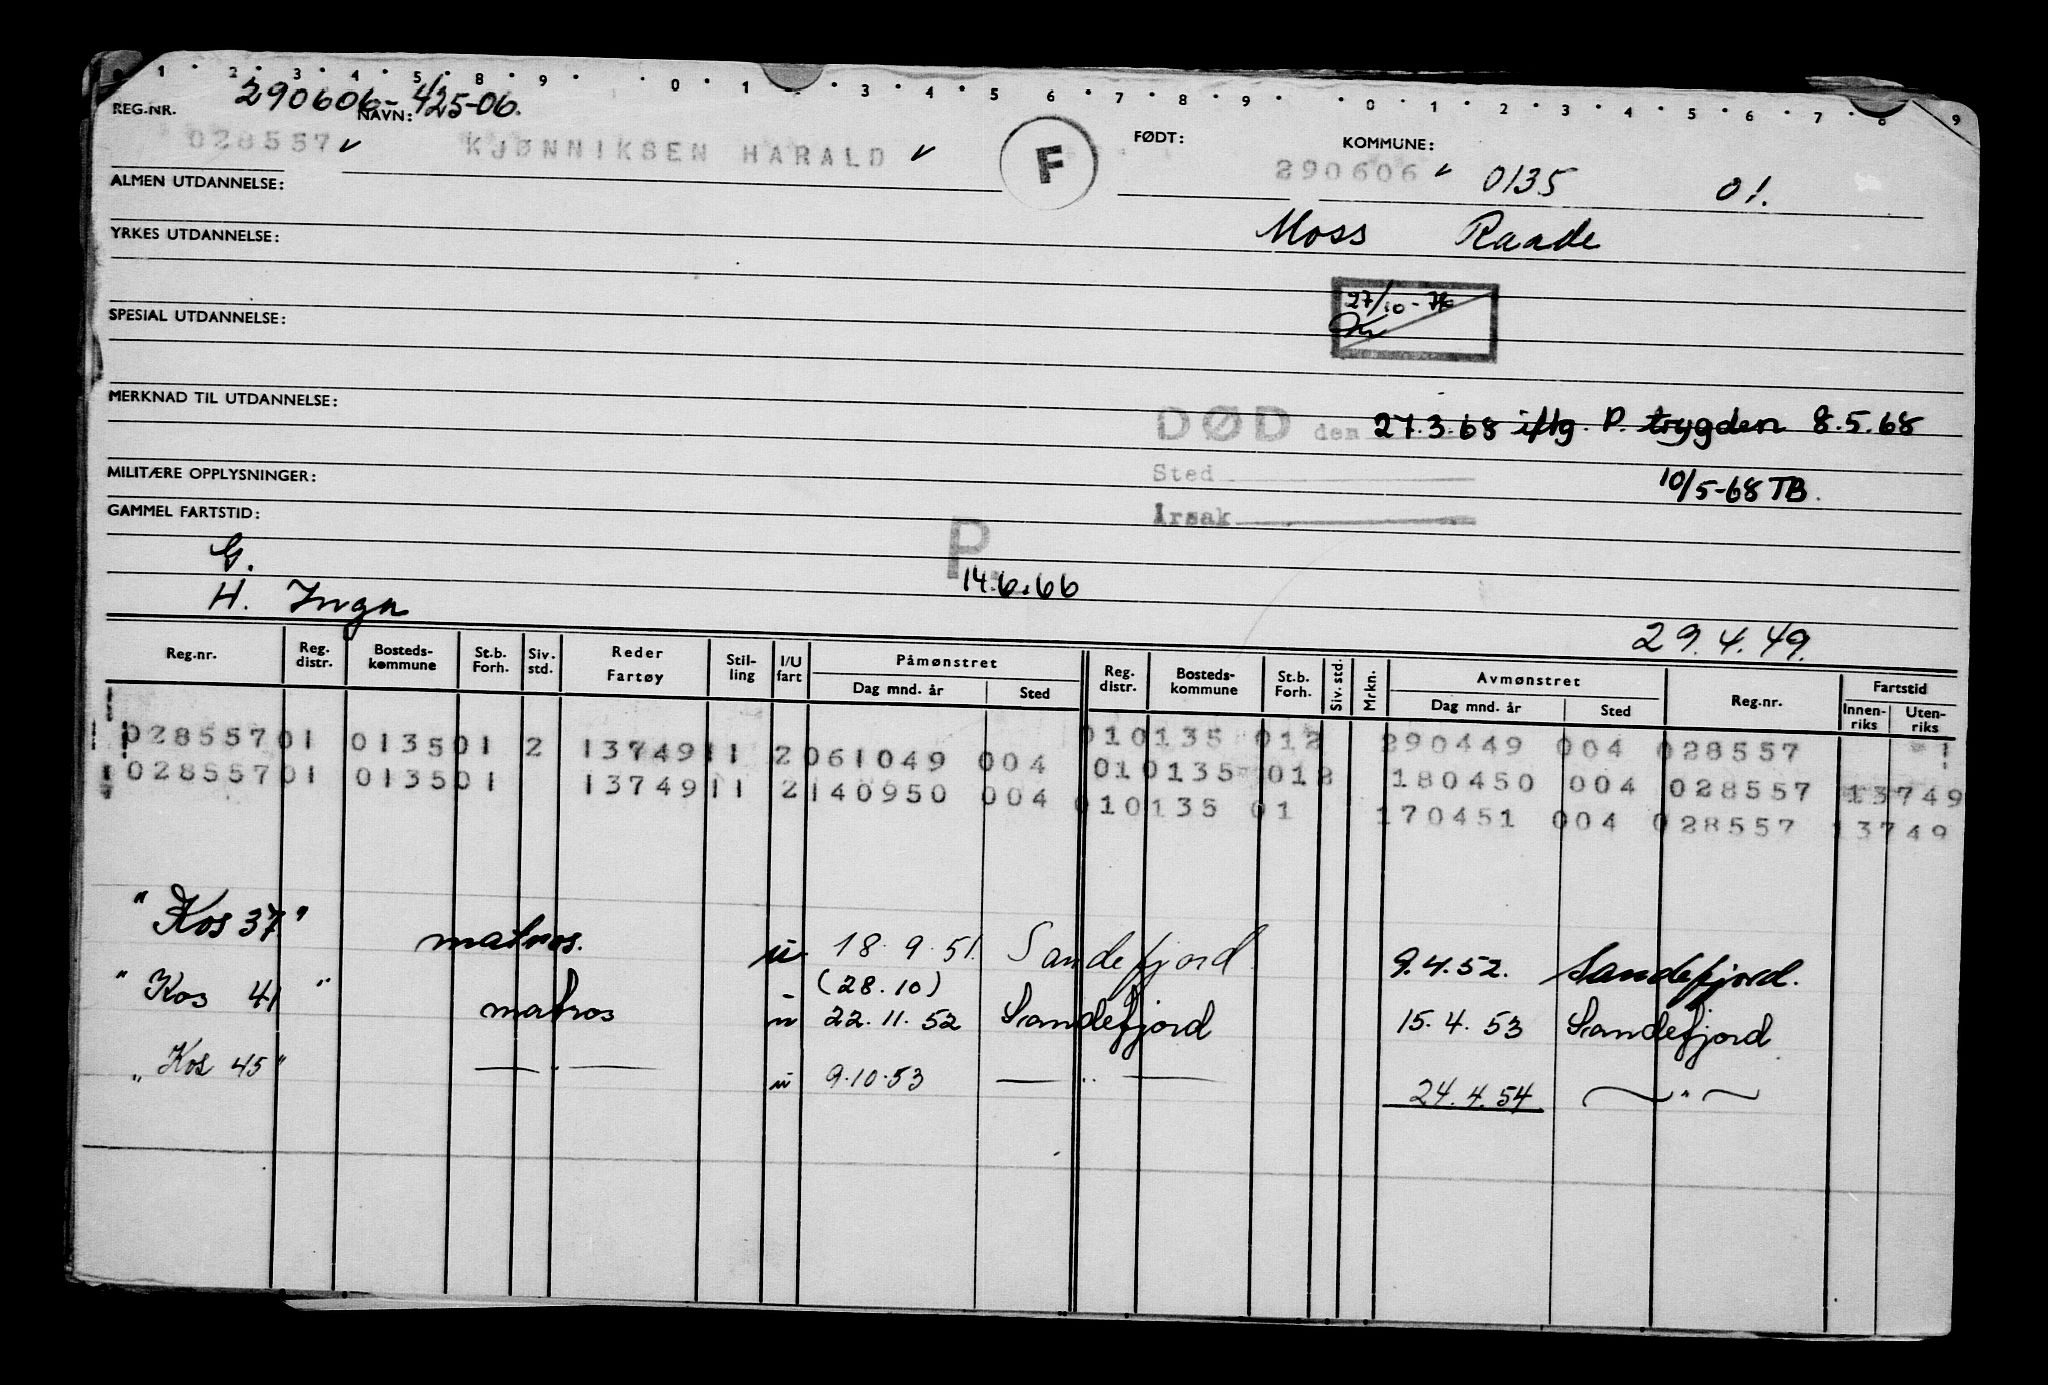 1 2 3 4 5 8 9 0 1 3 4 5 6 7 8 9 0 1 2 3 4 5 6 7 8 9
290606-425-06.
REG.NR. NAVN: FØDT: KOMMUNE:
028557 KJØNNIKSEN HARALD F 290606 0135 01.
ALMEN UTDANNELSE:
Moss Raade
YRKES UTDANNELSE:
27/10-76
SPESIAL UTDANNELSE:
MERKNAD TIL UTDANNELSE:
DØD den 27.3.68 iflg. P. trygden 8.5.68
Sted
10/5-68 TB.
MILITÆRE OPPLYSNINGER:
Årsak
GAMMEL FARTSTID:
P.
G.
14.6.66
H. Inga
29.4.49.
Reg.nr. Reg. distr. Bosteds-kommune St.b. Forh. Siv. std. Reder Fartøy Stil-ling I/U fart Påmønstret Dag mnd. år Sted Reg. distr. Bosteds-kommune St.b. Forh. Siv. std. Mrkn. Avmønstret Dag mnd. år Sted Reg.nr. Fartstid Innen-riks Uten-riks
010135 012 290449 004 028557
02855701 013501 2 13749 11 2 061049 004 010135 012 180450 004 028557 13749
02855701 013501 13749 11 2 140950 004 010135 01 170451 004 028557 13749
"Kos 37" matros. u 18.9.51. Sandefjord 9.4.52. Sandefjord.
(28.10)
"Kos 41" matros u 22.11.52 Sandefjord 15.4.53 Sandefjord
"Kos 45" — . — u 9.10.53 — " — 24.4.54 — " —